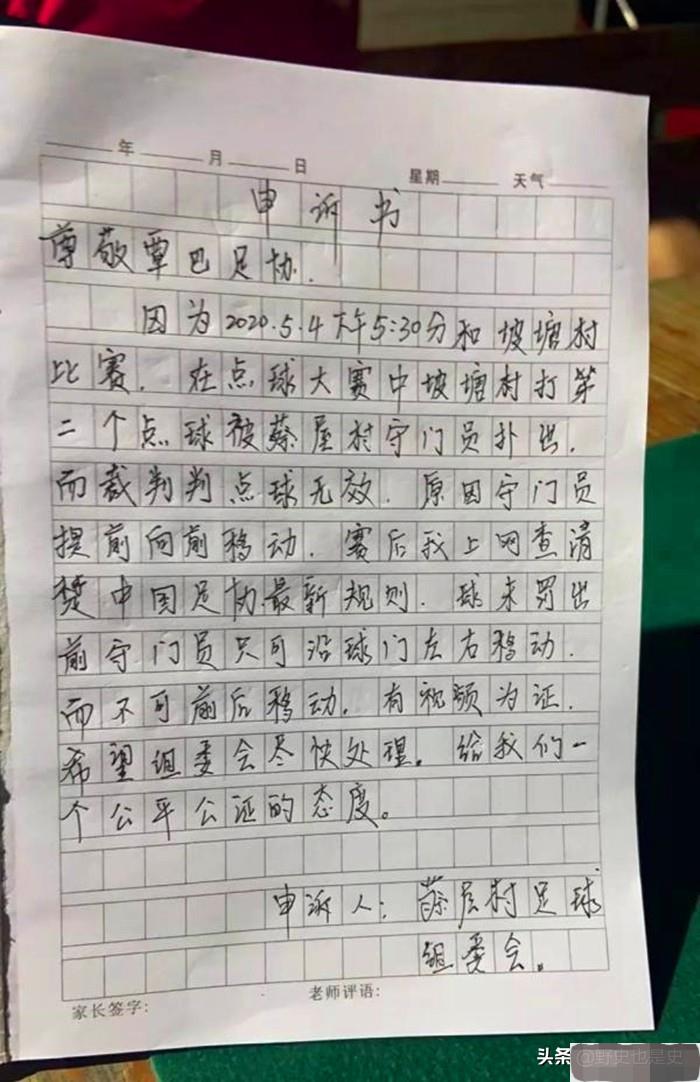 年 月 日 星期 天气
申诉书
尊敬覃巴足协.
因为2020.5.4下午5:30分和坡塘村
比赛.在点球大赛中坡塘村打第
二个点球被蔡屋村守门员扑出.
而裁判判点球无效.原因守门员
提前向前移动.赛后我上网查清
楚中国足协最新规则.球未罚出
前守门员只可沿球门左右移动.
而不可前后移动.有视频为证.
希望组委会尽快处理.给我们一
个公平公证的态度。
申诉人:蔡屋村足球
组委会.
家长签字: 老师评语:
头条 @野史也是史